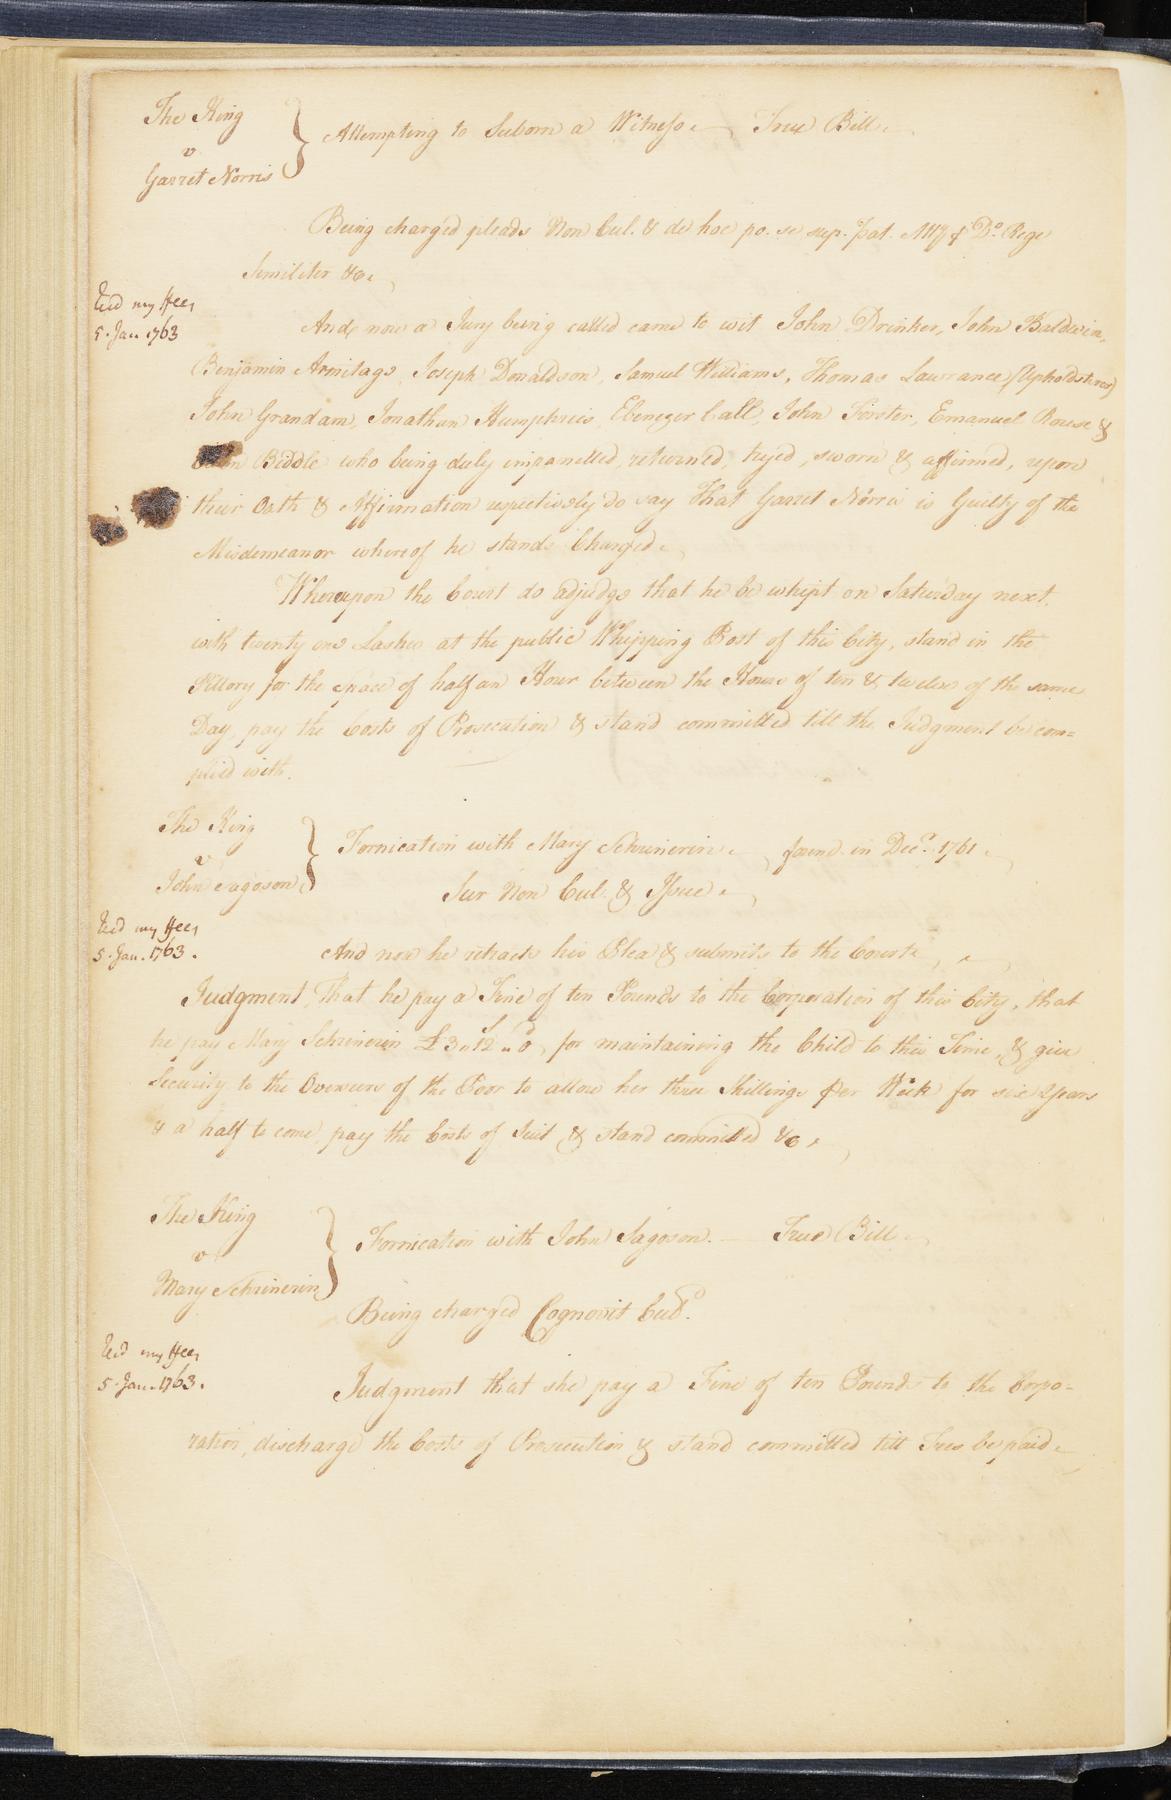 The King
v
Garret Norris
Attempting to Suborn a Witness. True Bill.
Being charged pleads Non Cul. & de hoc po. se sup. pat. Atty Do. Rege
Similiter &c.
Rec'd my Fees
5. Jan. 1763
And now a Jury being called came to wit John Drinker, John Baldwin,
Benjamin Armitage, Joseph Donaldson, Samuel Williams, Thomas Lawrance (Upholdsterer)
John Grandam, Jonathan Humphries, Ebenezer Call, John Forster, Emanuel Rouse &
Biddle who being duly impanelled, returned, tryed, sworn & affirmed, upon
their Oath & Affirmation respectively do say That Garret Norris is Guilty of the
Misdemeanor whereof he stands Charged.
Whereupon the Court do adjudge that he be whipt on Saturday next,
with twenty one Lashes at the public Whipping Post of this City, stand in the
Pillory for the space of half an Hour between the Hours of ten & twelve of the same
Day, pay the Costs of Prosecution & stand committed till the Judgment be com=
plied with.
The King
v
John Sagoson
Fornication with Mary Schrinerin. found in Decr. 1761.
Sur Non Cul. & Issue.
Rec'd my Fees
5. Jan. 1763.
And now he retracts his Plea & submits to the Court.
Judgment, That he pay a Fine of ten Pounds to the Corporation of this City, that
he pay Mary Schrinerin £3 " 12 s " 0 d, for maintaining the Child to this Time, & give
Security to the Overseers of the Poor to allow her three Shillings per Week for six Years
& a half to come, pay the Costs of Suit & stand committed &c.
The King
v
Mary Schrinerin
Fornication with John Sagoson. True Bill.
Being charged Cognovit Cul.
Rec'd my Fees
5. Jan. 1763.
Judgment that she pay a Fine of ten Pounds to the Corpo-
ration, discharge the Costs of Prosecution & stand committed till Fees be paid.